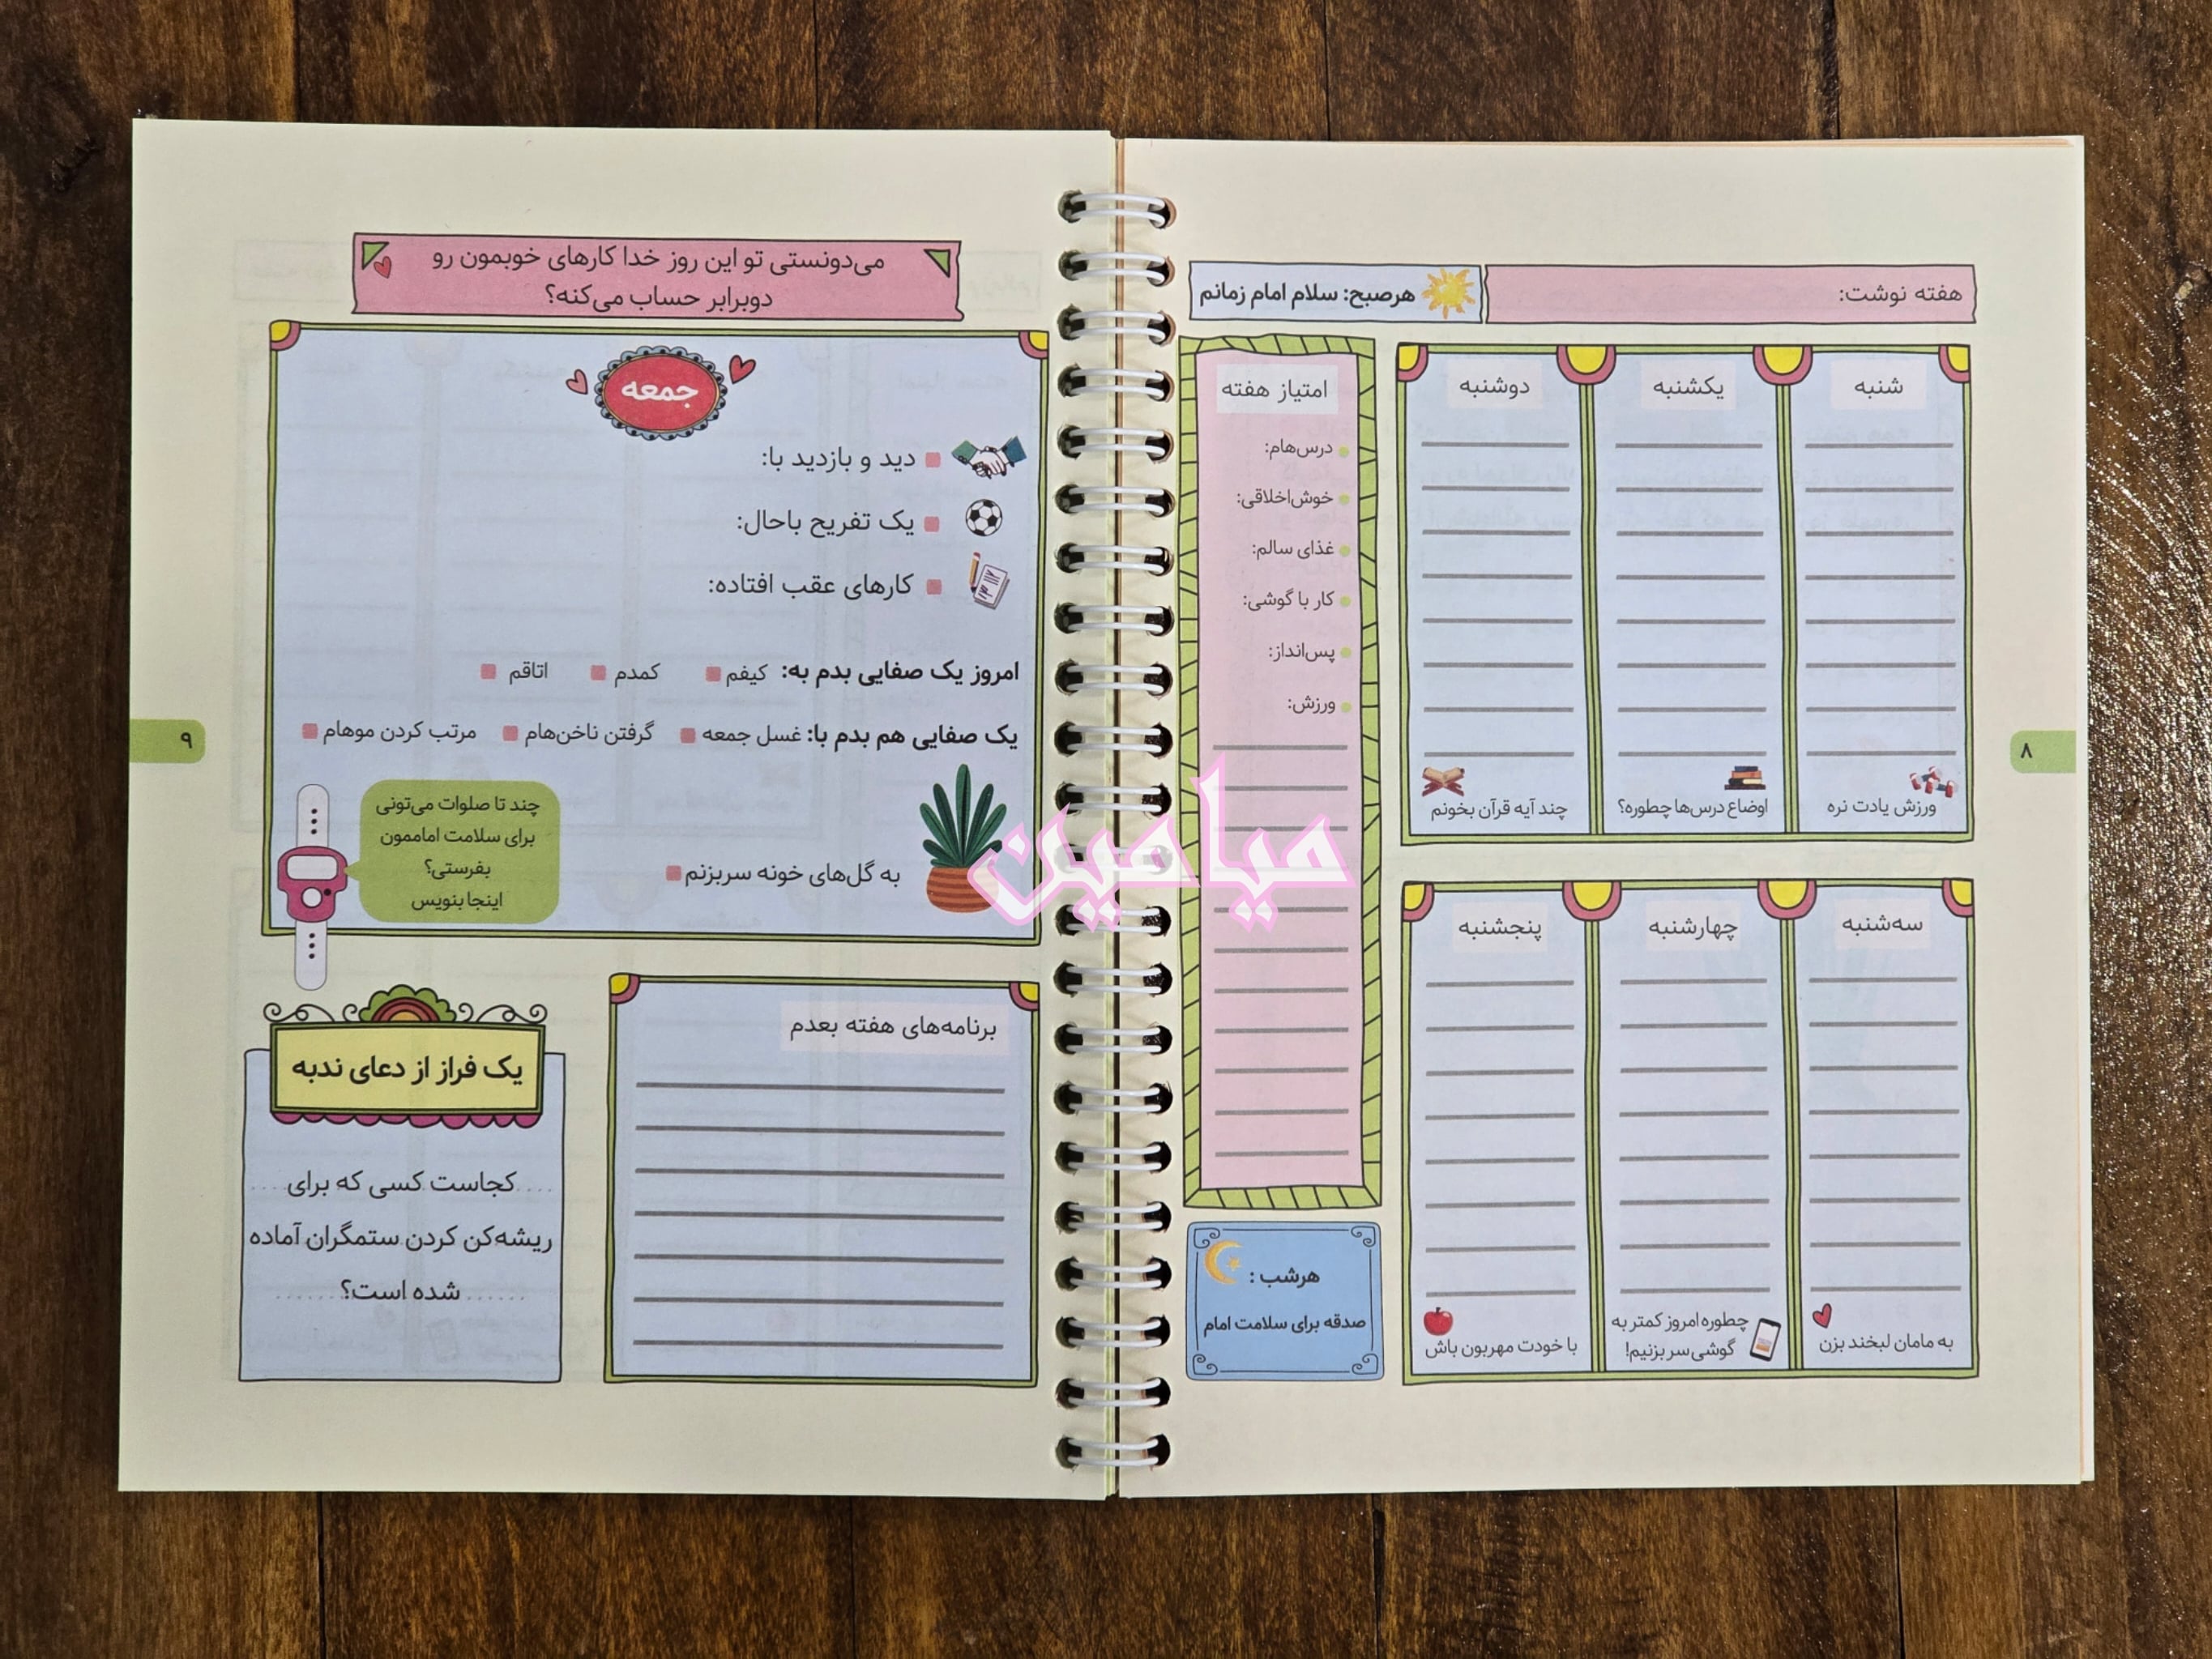 هفته نوشت:
هرصبح: سلام امام زمانم
شنبه
یکشنبه
دوشنبه
ورزش یادت نره
اوضاع درس‌ها چطوره؟
چند آیه قرآن بخونم
سه‌شنبه
چهارشنبه
پنجشنبه
به مامان لبخند بزن
چطوره امروز کمتر به
گوشی سر بزنیم!
با خودت مهربون باش
امتیاز هفته
درس‌هام:
خوش‌اخلاقی:
غذای سالم:
کار با گوشی:
پس‌انداز:
ورزش:
هرشب :
صدقه برای سلامت امام
۸
میامین
می‌دونستی تو این روز خدا کارهای خوبمون رو
دوبرابر حساب می‌کنه؟
جمعه
دید و بازدید با:
یک تفریح باحال:
کارهای عقب افتاده:
امروز یک صفایی بدم به: کیفم کمدم اتاقم
یک صفایی هم بدم با: غسل جمعه گرفتن ناخن‌هام مرتب کردن موهام
به گل‌های خونه سربزنم
چند تا صلوات می‌تونی
برای سلامت اماممون
بفرستی؟
اینجا بنویس
برنامه‌های هفته بعدم
یک فراز از دعای ندبه
کجاست کسی که برای
ریشه‌کن کردن ستمگران آماده
شده است؟
۹